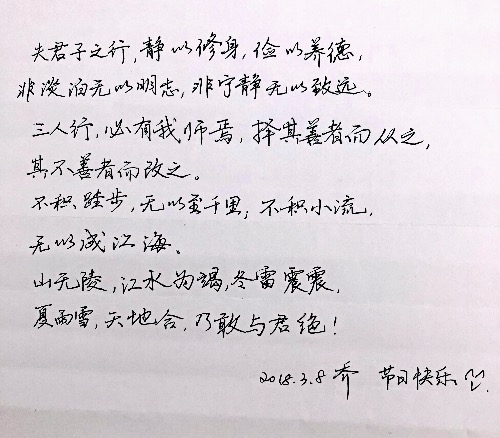 夫君子之行，静以修身，俭以养德，
非淡泊无以明志，非宁静无以致远。
三人行，必有我师焉，择其善者而从之，
其不善者而改之。
不积跬步，无以至千里，不积小流，
无以成江海、
山无陵，江水为竭，冬雷震震，
夏雨雪，天地合，乃敢与君绝！
2018.3.8 乔 节日快乐